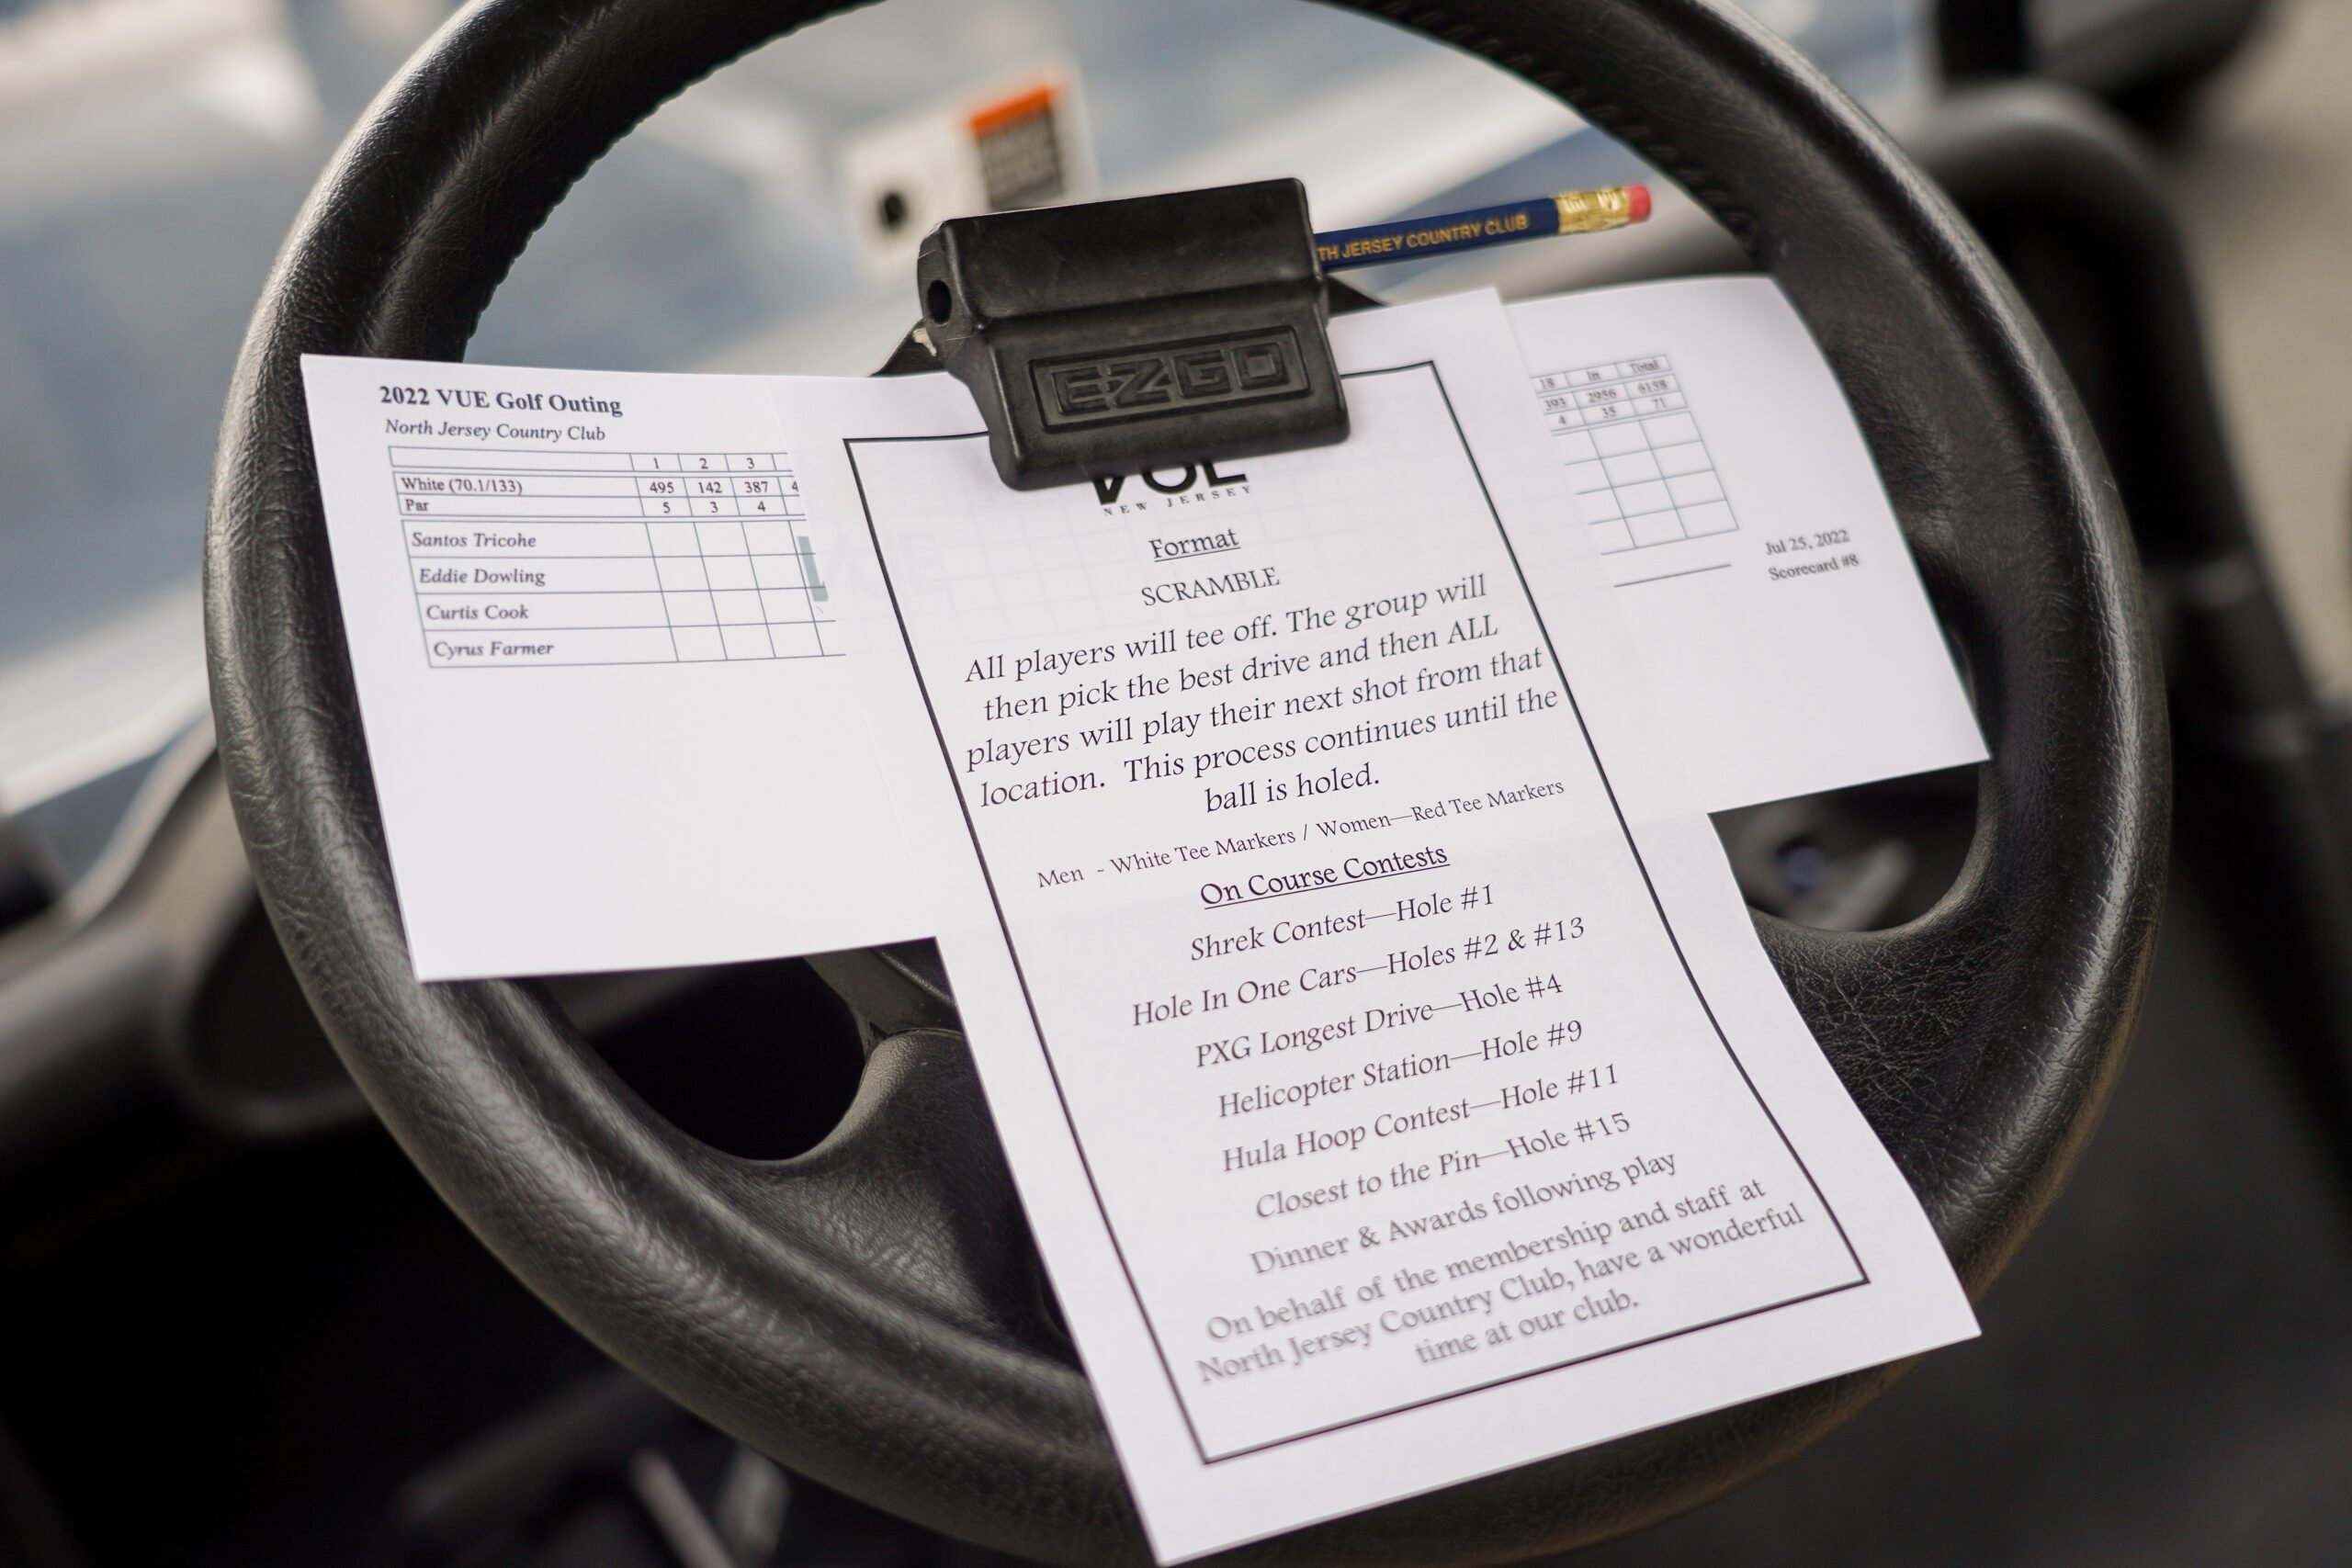 TH JERSEY COUNTRY CLUB
EZGO
2022 VUE Golf Outing
North Jersey Country Club
1 2 3
White (70.1/133) 495 142 387 4
Par 5 3 4
Santos Tricohe
Eddie Dowling
Curtis Cook
Cyrus Farmer
VUE
NEW JERSEY
Format
SCRAMBLE
All players will tee off. The group will
then pick the best drive and then ALL
players will play their next shot from that
location. This process continues until the
ball is holed.
Men - White Tee Markers / Women—Red Tee Markers
On Course Contests
Shrek Contest—Hole #1
Hole In One Cars—Holes #2 & #13
PXG Longest Drive—Hole #4
Helicopter Station—Hole #9
Hula Hoop Contest—Hole #11
Closest to the Pin—Hole #15
Dinner & Awards following play
On behalf of the membership and staff at
North Jersey Country Club, have a wonderful
time at our club.
18 In Total
393 2956 6158
4 35 71
Jul 25, 2022
Scorecard #8